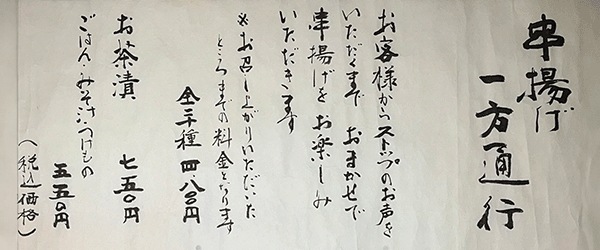 串揚げ
一方通行
お客様からストップのお声を
いただくまで おまかせで
串揚げをお楽しみ
いただきます
※お召し上がりいただいた
ところまでの料金となります
全二十種 四、八〇〇円
お茶漬 七五〇円
ごはん・みそ汁・つけもの
五五〇円
(税込価格)